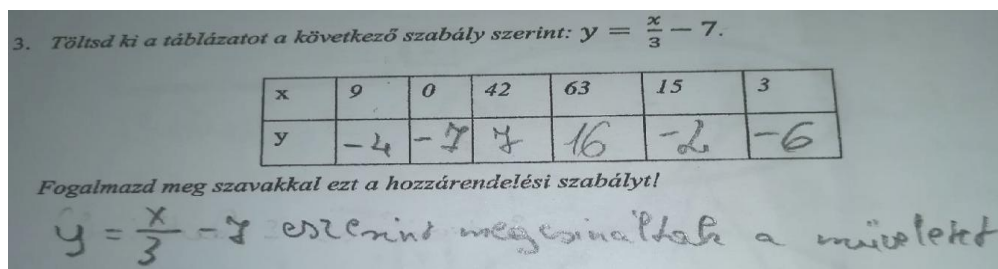 3. Töltsd ki a táblázatot a következő szabály szerint: y = x/3 − 7.
x 9 0 42 63 15 3
y -4 -7 7 16 -2 -6
Fogalmazd meg szavakkal ezt a hozzárendelési szabályt!
y = x/3 - 7 eszerint megcsináltak a műveletet